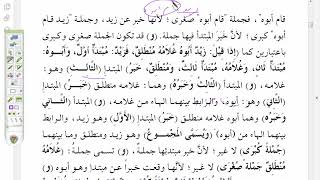 قام أبوه"، فجملة "قام أبوه" صغرى؛ لأنها خبر عن زيد، وجملة "زيد قام
أبوه" كبرى؛ لأن خبر المبتدأ فيها جملة. (و) قد تكون الجملة صغرى وكبرى
باعتبارين كما (إذا قيل: زَيْدٌ أَبُوهُ غُلَامُهُ مُنْطَلِقٌ، فَزَيْدٌ: مُبْتَدَأٌ أَوَّل، وَأَبُوهُ:
مُبْتَدَأٌ ثَان، وَغُلَامُهُ: مُبْتَدَأٌ ثَالِثٌ، وَمُنْطَلِقٌ: خَبَرُ) المبتدإ (الثَّالِثِ) وهو:
غلامه، (و) المبتدأ (الثَّالِثُ وَخَبَرُهُ) وهو: غلامه منطلق (خَبَرُ) المبتدإ
(الثَّانِي) وهو: أبوه، والرابط بينهما الهاء من غلامه، (و) المبتدأ (الثَّانِي
وَخَبَرُهُ) وهو: أبوه غلامه منطلق (خَبَرُ) المبتدإ (الأَوَّلِ) وهو زيد، والرابط
بينهما الهاء من أبوه، (وَيُسَمَّى المَجْمُوعُ) وهو زيد ومنطلق وما بينهما
(جُمْلَةً كُبْرَى) لا غير؛ لأن خبر مبتدئها جملة، (و) تسمى جملة (غُلَامُهُ
مُنْطَلِقٌ جُمْلَةً صُغْرَى) لا غير؛ لأنها وقعت خبراً عن مبتدإ وهو أبوه (و)